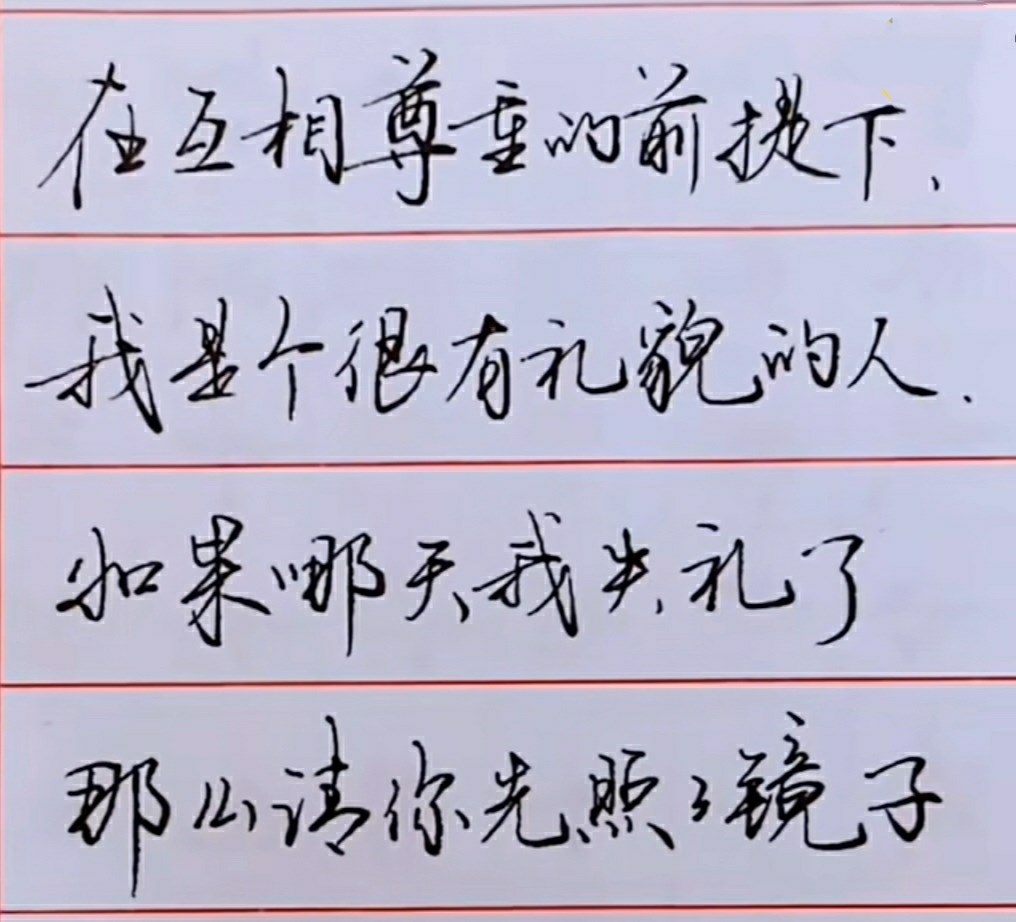 在互相尊重的前提下、
我是个很有礼貌的人.
如果哪天我失礼了
那么请你先照照镜子